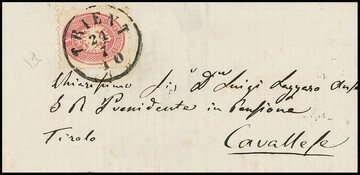 TRIENT
24
7
10
Chiarissimo Sig Dn Luigi
I R Presidente in Pensione
Tirolo
Cavallese